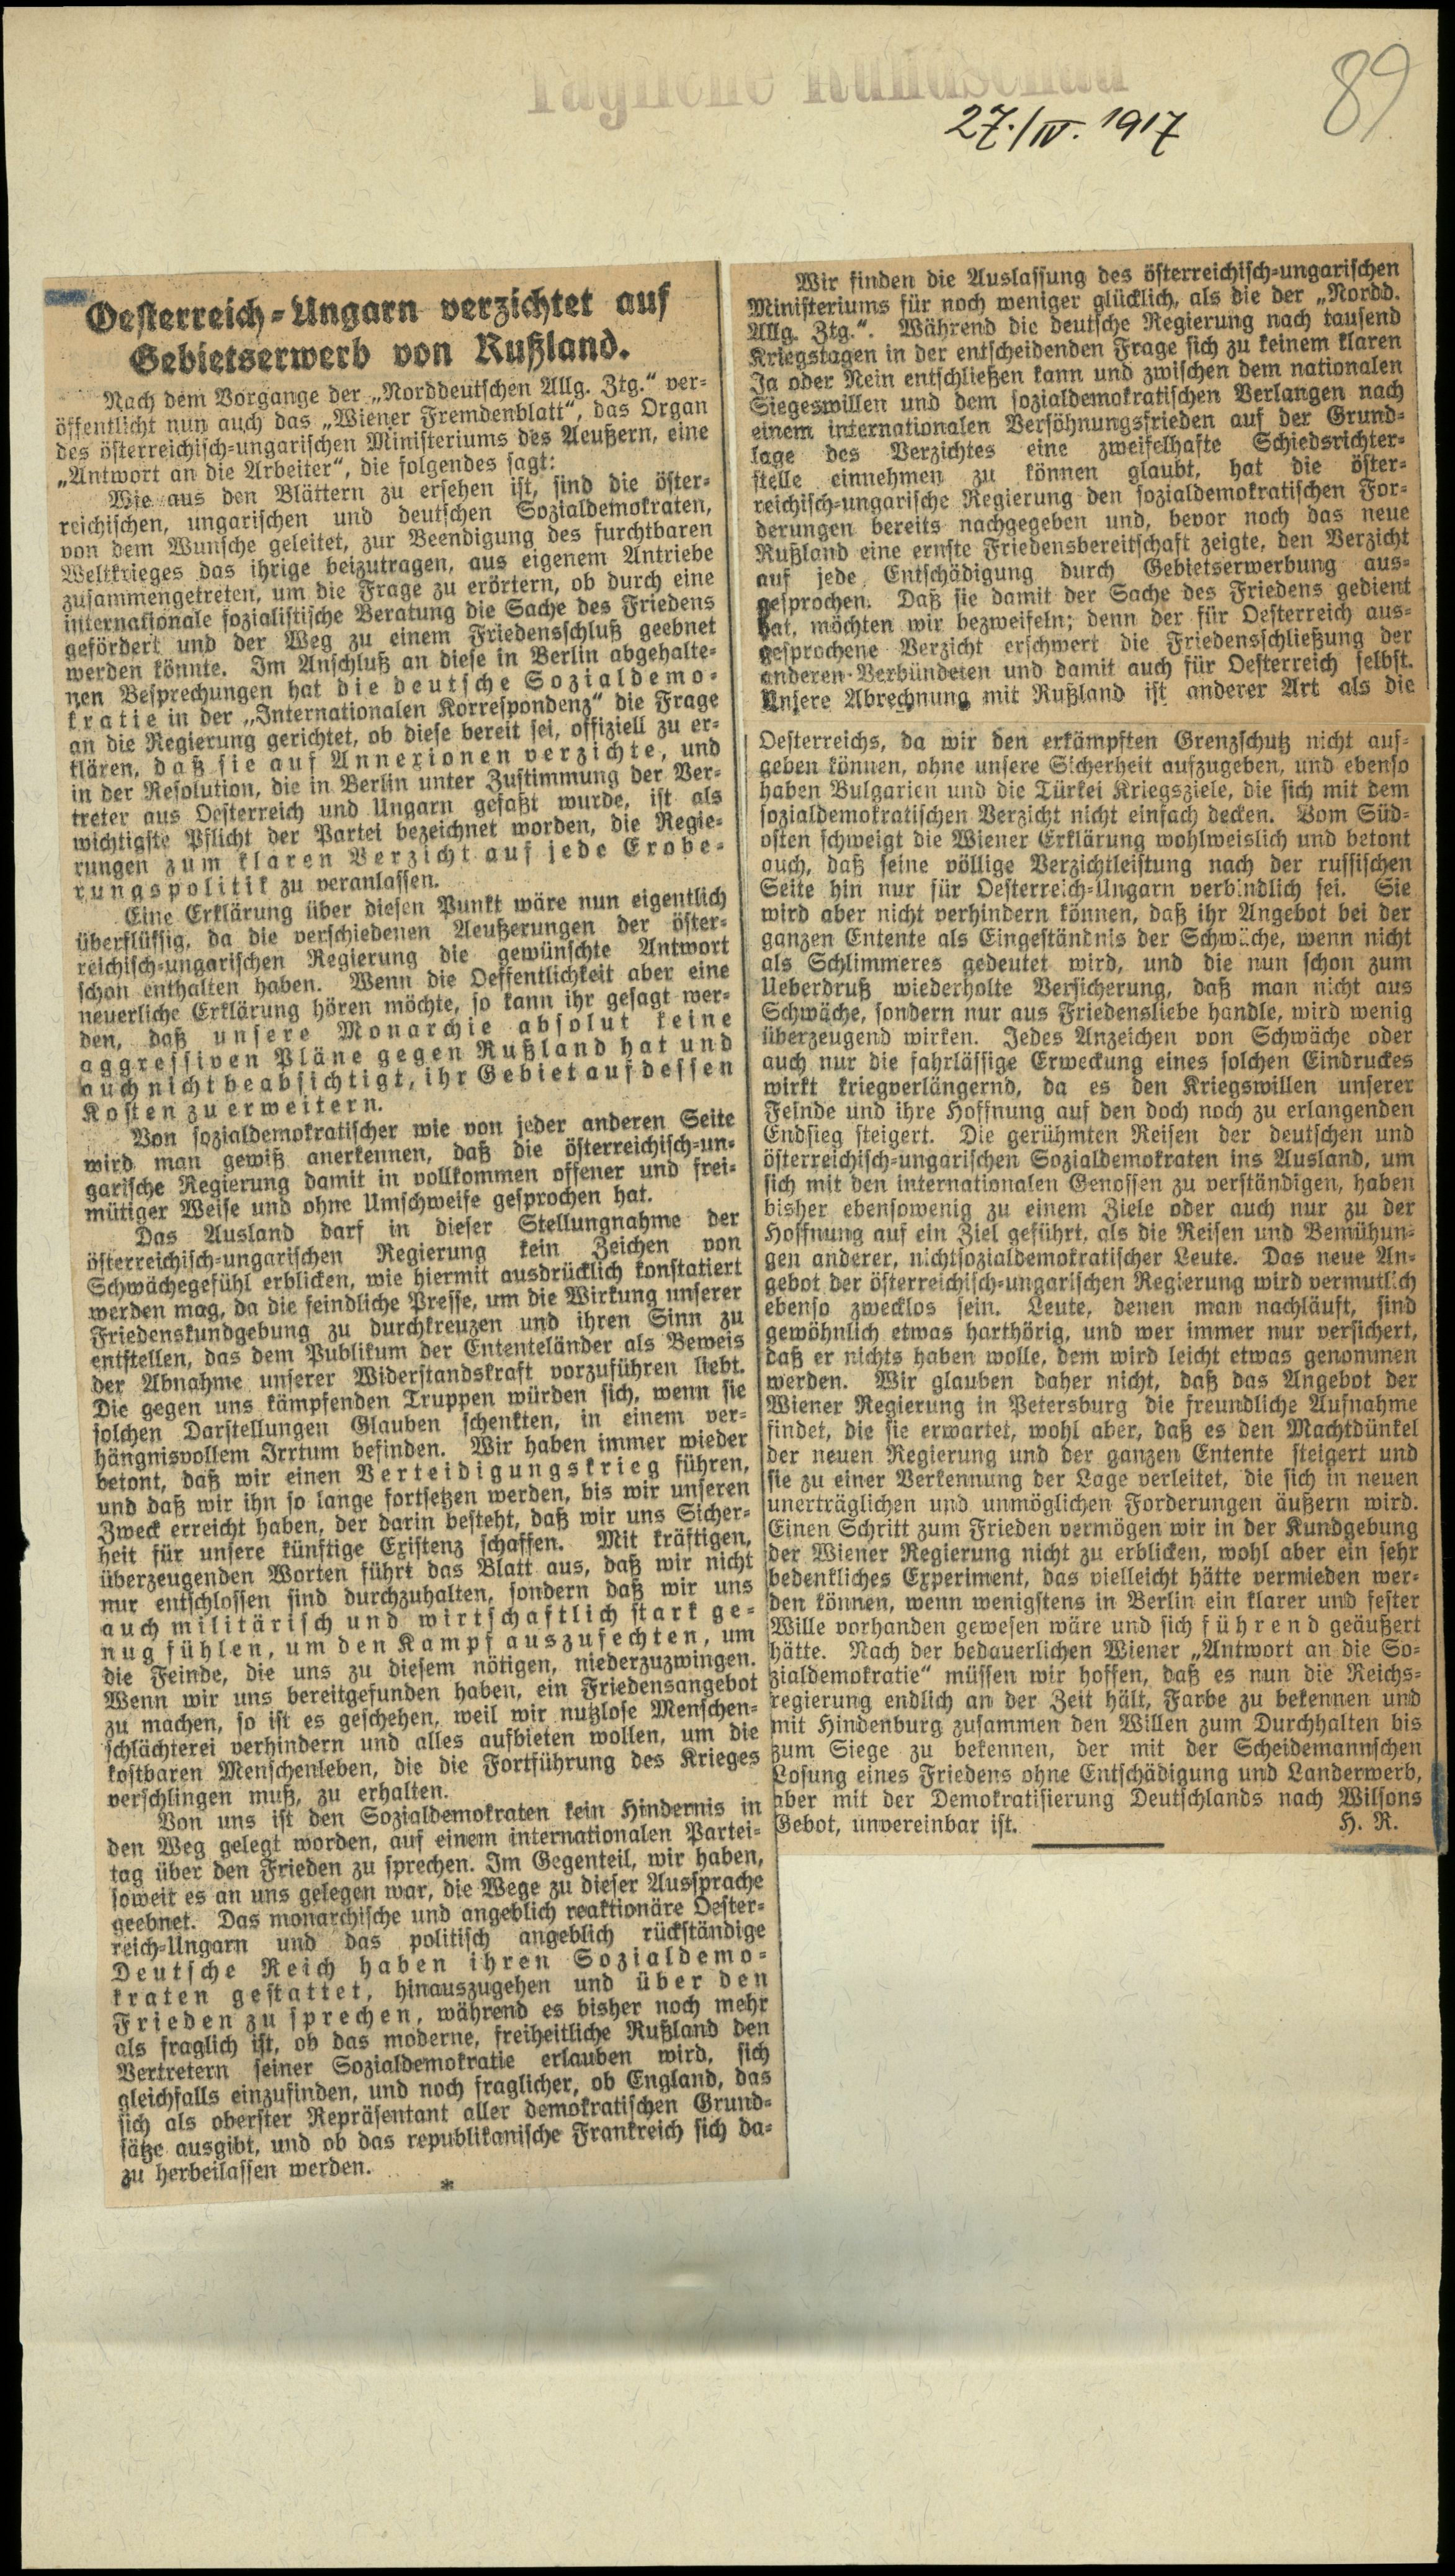 Tägliche Rundschau
27./IV. 1917
89
Oesterreich-Ungarn verzichtet auf
Gebietserwerb von Rußland.
Nach dem Vorgange der „Norddeutschen Allg. Ztg.“ ver-
öffentlicht nun auch das „Wiener Fremdenblatt“, das Organ
des österreichisch-ungarischen Ministeriums des Aeußern, eine
„Antwort an die Arbeiter“, die folgendes sagt:
Wie aus den Blättern zu ersehen ist, sind die öster-
reichischen, ungarischen und deutschen Sozialdemokraten,
von dem Wunsche geleitet, zur Beendigung des furchtbaren
Weltkrieges das ihrige beizutragen, aus eigenem Antriebe
zusammengetreten, um die Frage zu erörtern, ob durch eine
internationale sozialistische Beratung die Sache des Friedens
gefördert und der Weg zu einem Friedensschluß geebnet
werden könnte. Im Anschluß an diese in Berlin abgehalte-
nen Besprechungen hat die deutsche Sozialdemo-
kratie in der „Internationalen Korrespondenz“ die Frage
an die Regierung gerichtet, ob diese bereit sei, offiziell zu er-
klären, daß sie auf Annexionen verzichte, und
in der Resolution, die in Berlin unter Zustimmung der Ver-
treter aus Oesterreich und Ungarn gefaßt wurde, ist als
wichtigste Pflicht der Partei bezeichnet worden, die Regie-
rungen zum klaren Verzicht auf jede Erobe-
rungspolitik zu veranlassen.
Eine Erklärung über diesen Punkt wäre nun eigentlich
überflüssig, da die verschiedenen Aeußerungen der öster-
reichisch-ungarischen Regierung die gewünschte Antwort
schon enthalten haben. Wenn die Oeffentlichkeit aber eine
neuerliche Erklärung hören möchte, so kann ihr gesagt wer-
den, daß unsere Monarchie absolut keine
aggressiven Pläne gegen Rußland hat und
auch nicht beabsichtigt, ihr Gebiet auf dessen
Kosten zu erweitern.
Von sozialdemokratischer wie von jeder anderen Seite
wird man gewiß anerkennen, daß die österreichisch-un-
garische Regierung damit in vollkommen offener und frei-
mütiger Weise und ohne Umschweife gesprochen hat.
Das Ausland darf in dieser Stellungnahme der
österreichisch-ungarischen Regierung kein Zeichen von
Schwächegefühl erblicken, wie hiermit ausdrücklich konstatiert
werden mag, da die feindliche Presse, um die Wirkung unserer
Friedenskundgebung zu durchkreuzen und ihren Sinn zu
entstellen, das dem Publikum der Ententeländer als Beweis
der Abnahme unserer Widerstandskraft vorzuführen liebt.
Die gegen uns kämpfenden Truppen würden sich, wenn sie
solchen Darstellungen Glauben schenkten, in einem ver-
hängnisvollem Irrtum befinden. Wir haben immer wieder
betont, daß wir einen Verteidigungskrieg führen,
und daß wir ihn so lange fortsetzen werden, bis wir unseren
Zweck erreicht haben, der darin besteht, daß wir uns Sicher-
heit für unsere künftige Existenz schaffen. Mit kräftigen,
überzeugenden Worten führt das Blatt aus, daß wir nicht
nur entschlossen sind durchzuhalten, sondern daß wir uns
auch militärisch und wirtschaftlich stark ge-
nug fühlen, um den Kampf auszufechten, um
die Feinde, die uns zu diesem nötigen, niederzuzwingen.
Wenn wir uns bereitgefunden haben, ein Friedensangebot
zu machen, so ist es geschehen, weil wir nutzlose Menschen-
schlächterei verhindern und alles aufbieten wollen, um die
kostbaren Menschenleben, die die Fortführung des Krieges
verschlingen muß, zu erhalten.
Von uns ist den Sozialdemokraten kein Hindernis in
den Weg gelegt worden, auf einem internationalen Partei-
tag über den Frieden zu sprechen. Im Gegenteil, wir haben,
soweit es an uns gelegen war, die Wege zu dieser Aussprache
geebnet. Das monarchische und angeblich reaktionäre Oester-
reich-Ungarn und das politisch angeblich rückständige
Deutsche Reich haben ihren Sozialdemo-
kraten gestattet, hinauszugehen und über den
Frieden zu sprechen, während es bisher noch mehr
als fraglich ist, ob das moderne, freiheitliche Rußland den
Vertretern seiner Sozialdemokratie erlauben wird, sich
gleichfalls einzufinden, und noch fraglicher, ob England, das
sich als oberster Repräsentant aller demokratischen Grund-
sätze ausgibt, und ob das republikanische Frankreich sich da-
zu herbeilassen werden.
*
Wir finden die Auslassung des österreichisch-ungarischen
Ministeriums für noch weniger glücklich, als die der „Nordd.
Allg. Ztg.“. Während die deutsche Regierung nach tausend
Kriegstagen in der entscheidenden Frage sich zu keinem klaren
Ja oder Nein entschließen kann und zwischen dem nationalen
Siegeswillen und dem sozialdemokratischen Verlangen nach
einem internationalen Versöhnungsfrieden auf der Grund-
lage des Verzichtes eine zweifelhafte Schiedsrichter-
stelle einnehmen zu können glaubt, hat die öster-
reichisch-ungarische Regierung den sozialdemokratischen For-
derungen bereits nachgegeben und, bevor noch das neue
Rußland eine ernste Friedensbereitschaft zeigte, den Verzicht
auf jede Entschädigung durch Gebietserwerbung aus-
gesprochen. Daß sie damit der Sache des Friedens gedient
hat, möchten wir bezweifeln; denn der für Oesterreich aus-
gesprochene Verzicht erschwert die Friedensschließung der
anderen Verbündeten und damit auch für Oesterreich selbst.
Unsere Abrechnung mit Rußland ist anderer Art als die
Oesterreichs, da wir den erkämpften Grenzschutz nicht auf-
geben können, ohne unsere Sicherheit aufzugeben, und ebenso
haben Bulgarien und die Türkei Kriegsziele, die sich mit dem
sozialdemokratischen Verzicht nicht einfach decken. Vom Süd-
osten schweigt die Wiener Erklärung wohlweislich und betont
auch, daß seine völlige Verzichtleistung nach der russischen
Seite hin nur für Oesterreich-Ungarn verbindlich sei. Sie
wird aber nicht verhindern können, daß ihr Angebot bei der
ganzen Entente als Eingeständnis der Schwäche, wenn nicht
als Schlimmeres gedeutet wird, und die nun schon zum
Ueberdruß wiederholte Versicherung, daß man nicht aus
Schwäche, sondern nur aus Friedensliebe handle, wird wenig
überzeugend wirken. Jedes Anzeichen von Schwäche oder
auch nur die fahrlässige Erweckung eines solchen Eindruckes
wirkt kriegverlängernd, da es den Kriegswillen unserer
Feinde und ihre Hoffnung auf den doch noch zu erlangenden
Endsieg steigert. Die gerühmten Reisen der deutschen und
österreichisch-ungarischen Sozialdemokraten ins Ausland, um
sich mit den internationalen Genossen zu verständigen, haben
bisher ebensowenig zu einem Ziele oder auch nur zu der
Hoffnung auf ein Ziel geführt, als die Reisen und Bemühun-
gen anderer, nichtsozialdemokratischer Leute. Das neue An-
gebot der österreichisch-ungarischen Regierung wird vermutlich
ebenso zwecklos sein. Leute, denen man nachläuft, sind
gewöhnlich etwas harthörig, und wer immer nur versichert,
daß er nichts haben wolle, dem wird leicht etwas genommen
werden. Wir glauben daher nicht, daß das Angebot der
Wiener Regierung in Petersburg die freundliche Aufnahme
findet, die sie erwartet, wohl aber, daß es den Machtdünkel
der neuen Regierung und der ganzen Entente steigert und
sie zu einer Verkennung der Lage verleitet, die sich in neuen
unerträglichen und unmöglichen Forderungen äußern wird.
Einen Schritt zum Frieden vermögen wir in der Kundgebung
der Wiener Regierung nicht zu erblicken, wohl aber ein sehr
bedenkliches Experiment, das vielleicht hätte vermieden wer-
den können, wenn wenigstens in Berlin ein klarer und fester
Wille vorhanden gewesen wäre und sich führend geäußert
hätte. Nach der bedauerlichen Wiener „Antwort an die So-
zialdemokratie“ müssen wir hoffen, daß es nun die Reichs-
regierung endlich an der Zeit hält, Farbe zu bekennen und
mit Hindenburg zusammen den Willen zum Durchhalten bis
zum Siege zu bekennen, der mit der Scheidemannschen
Losung eines Friedens ohne Entschädigung und Landerwerb,
aber mit der Demokratisierung Deutschlands nach Wilsons
Gebot, unvereinbar ist. H. R.